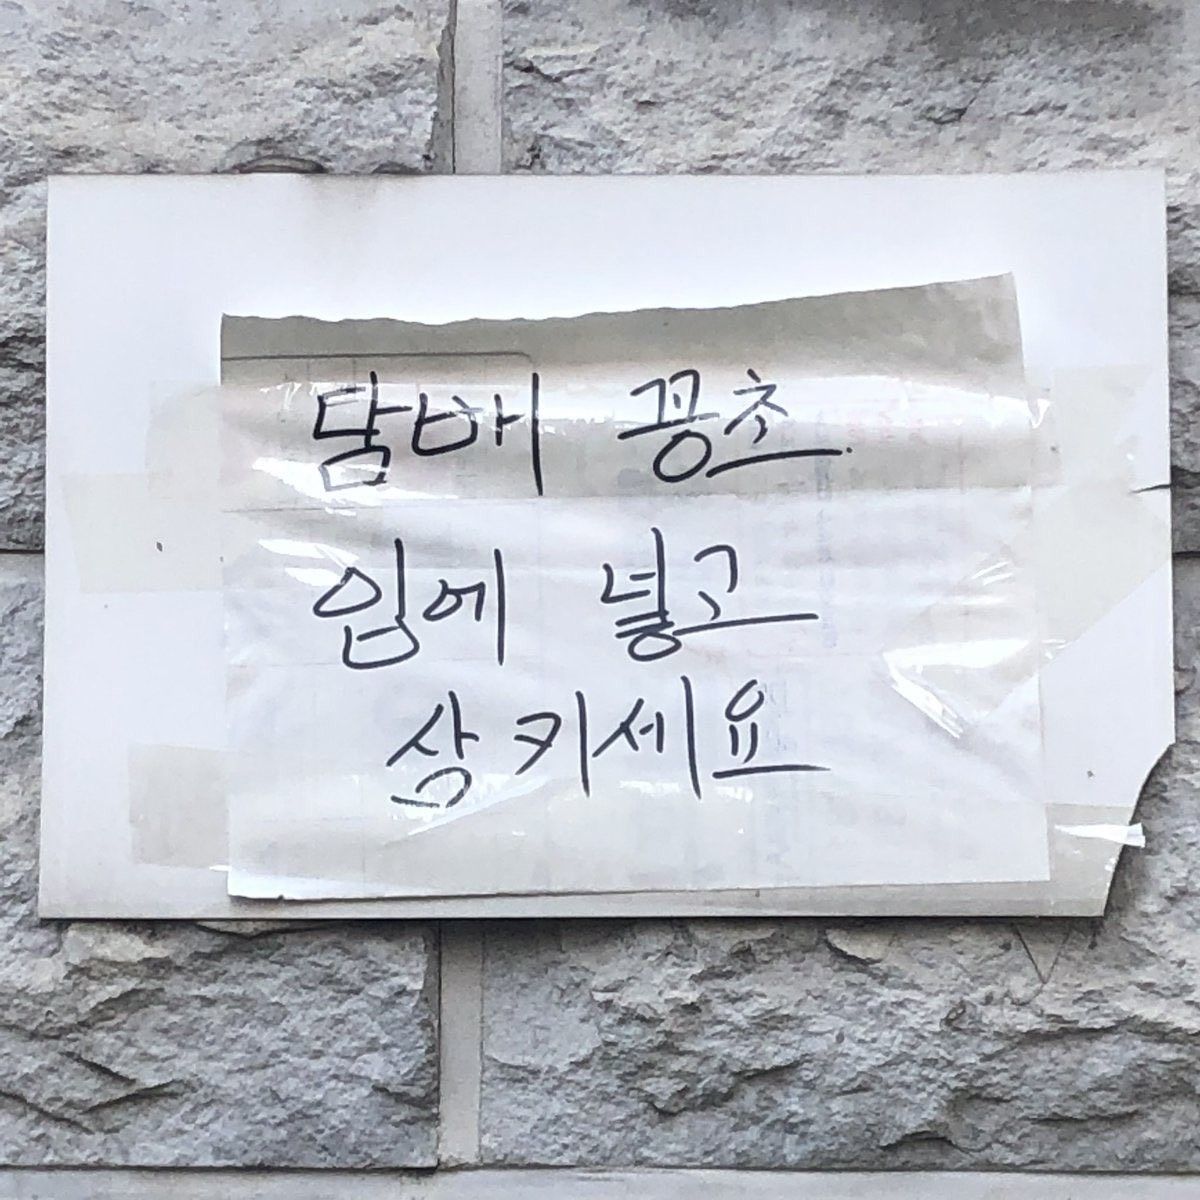 담배 꽁초
입에 넣고
상키세요